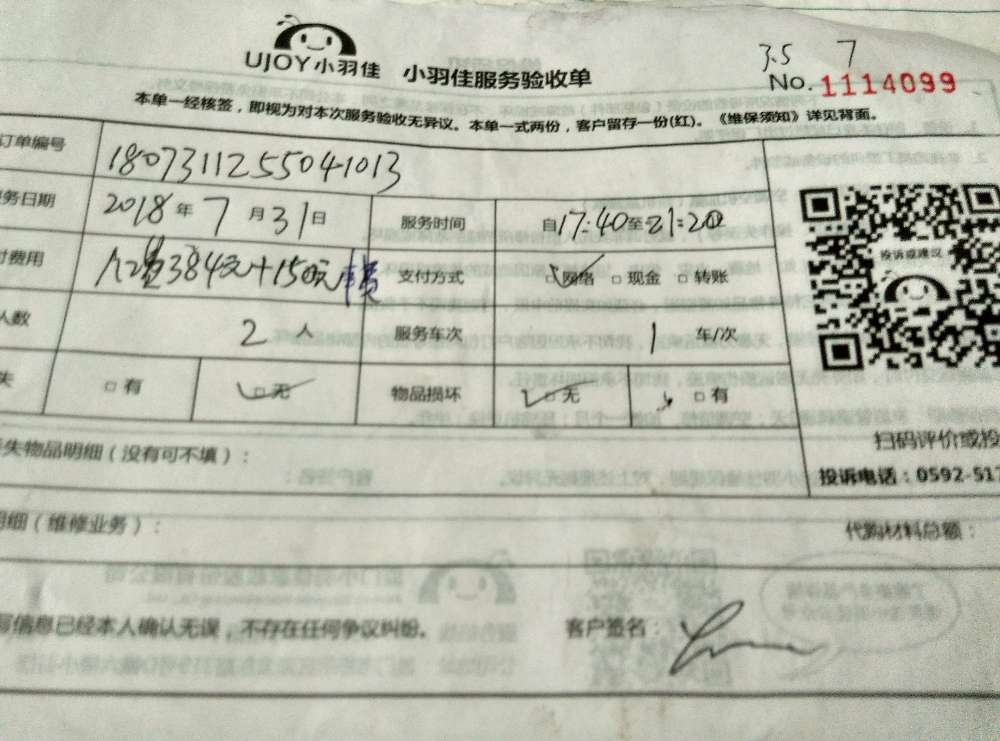 UJOY小羽佳 小羽佳服务验收单
3.5 7
No. 1114099
本单一经核签，即视为对本次服务验收无异议。本单一式两份，客户留存一份(红)。《维保须知》详见背面。
订单编号 1807311255041013
务日期 2018年7月31日 服务时间 自17:40至21:20
付费用 384元+150元车费 支付方式 □网络 □现金 □转账
人数 2人 服务车次 1 车/次
失 □有 □无 物品损坏 □无 □有
投诉或建议
扫码评价或投
失物品明细（没有可不填）：
投诉电话：0592-517
明细（维修业务）： 代购材料总额：
写信息已经本人确认无误，不存在任何争议纠纷。 客户签名：